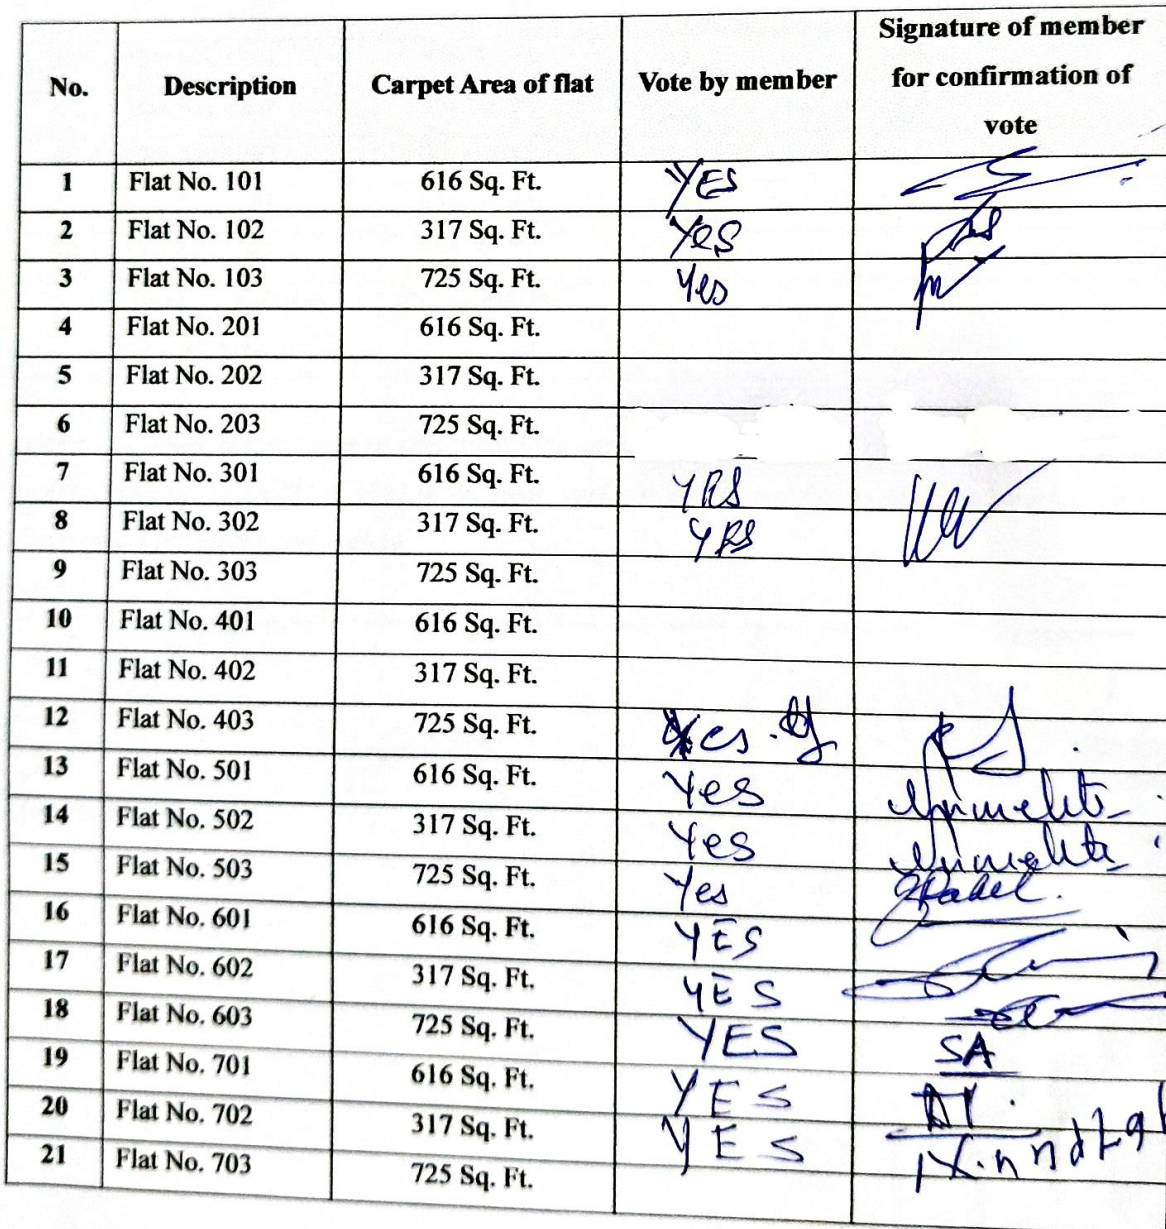 No. Description Carpet Area of flat Vote by member Signature of member for confirmation of vote
1 Flat No. 101 616 Sq. Ft. YES
2 Flat No. 102 317 Sq. Ft. Yes
3 Flat No. 103 725 Sq. Ft. Yes
4 Flat No. 201 616 Sq. Ft.
5 Flat No. 202 317 Sq. Ft.
6 Flat No. 203 725 Sq. Ft.
7 Flat No. 301 616 Sq. Ft. YES
8 Flat No. 302 317 Sq. Ft. YES
9 Flat No. 303 725 Sq. Ft.
10 Flat No. 401 616 Sq. Ft.
11 Flat No. 402 317 Sq. Ft.
12 Flat No. 403 725 Sq. Ft. Yes
13 Flat No. 501 616 Sq. Ft. Yes
14 Flat No. 502 317 Sq. Ft. Yes
15 Flat No. 503 725 Sq. Ft. Yes
16 Flat No. 601 616 Sq. Ft. YES
17 Flat No. 602 317 Sq. Ft. YES
18 Flat No. 603 725 Sq. Ft. YES SA
19 Flat No. 701 616 Sq. Ft. YES
20 Flat No. 702 317 Sq. Ft. YES
21 Flat No. 703 725 Sq. Ft.